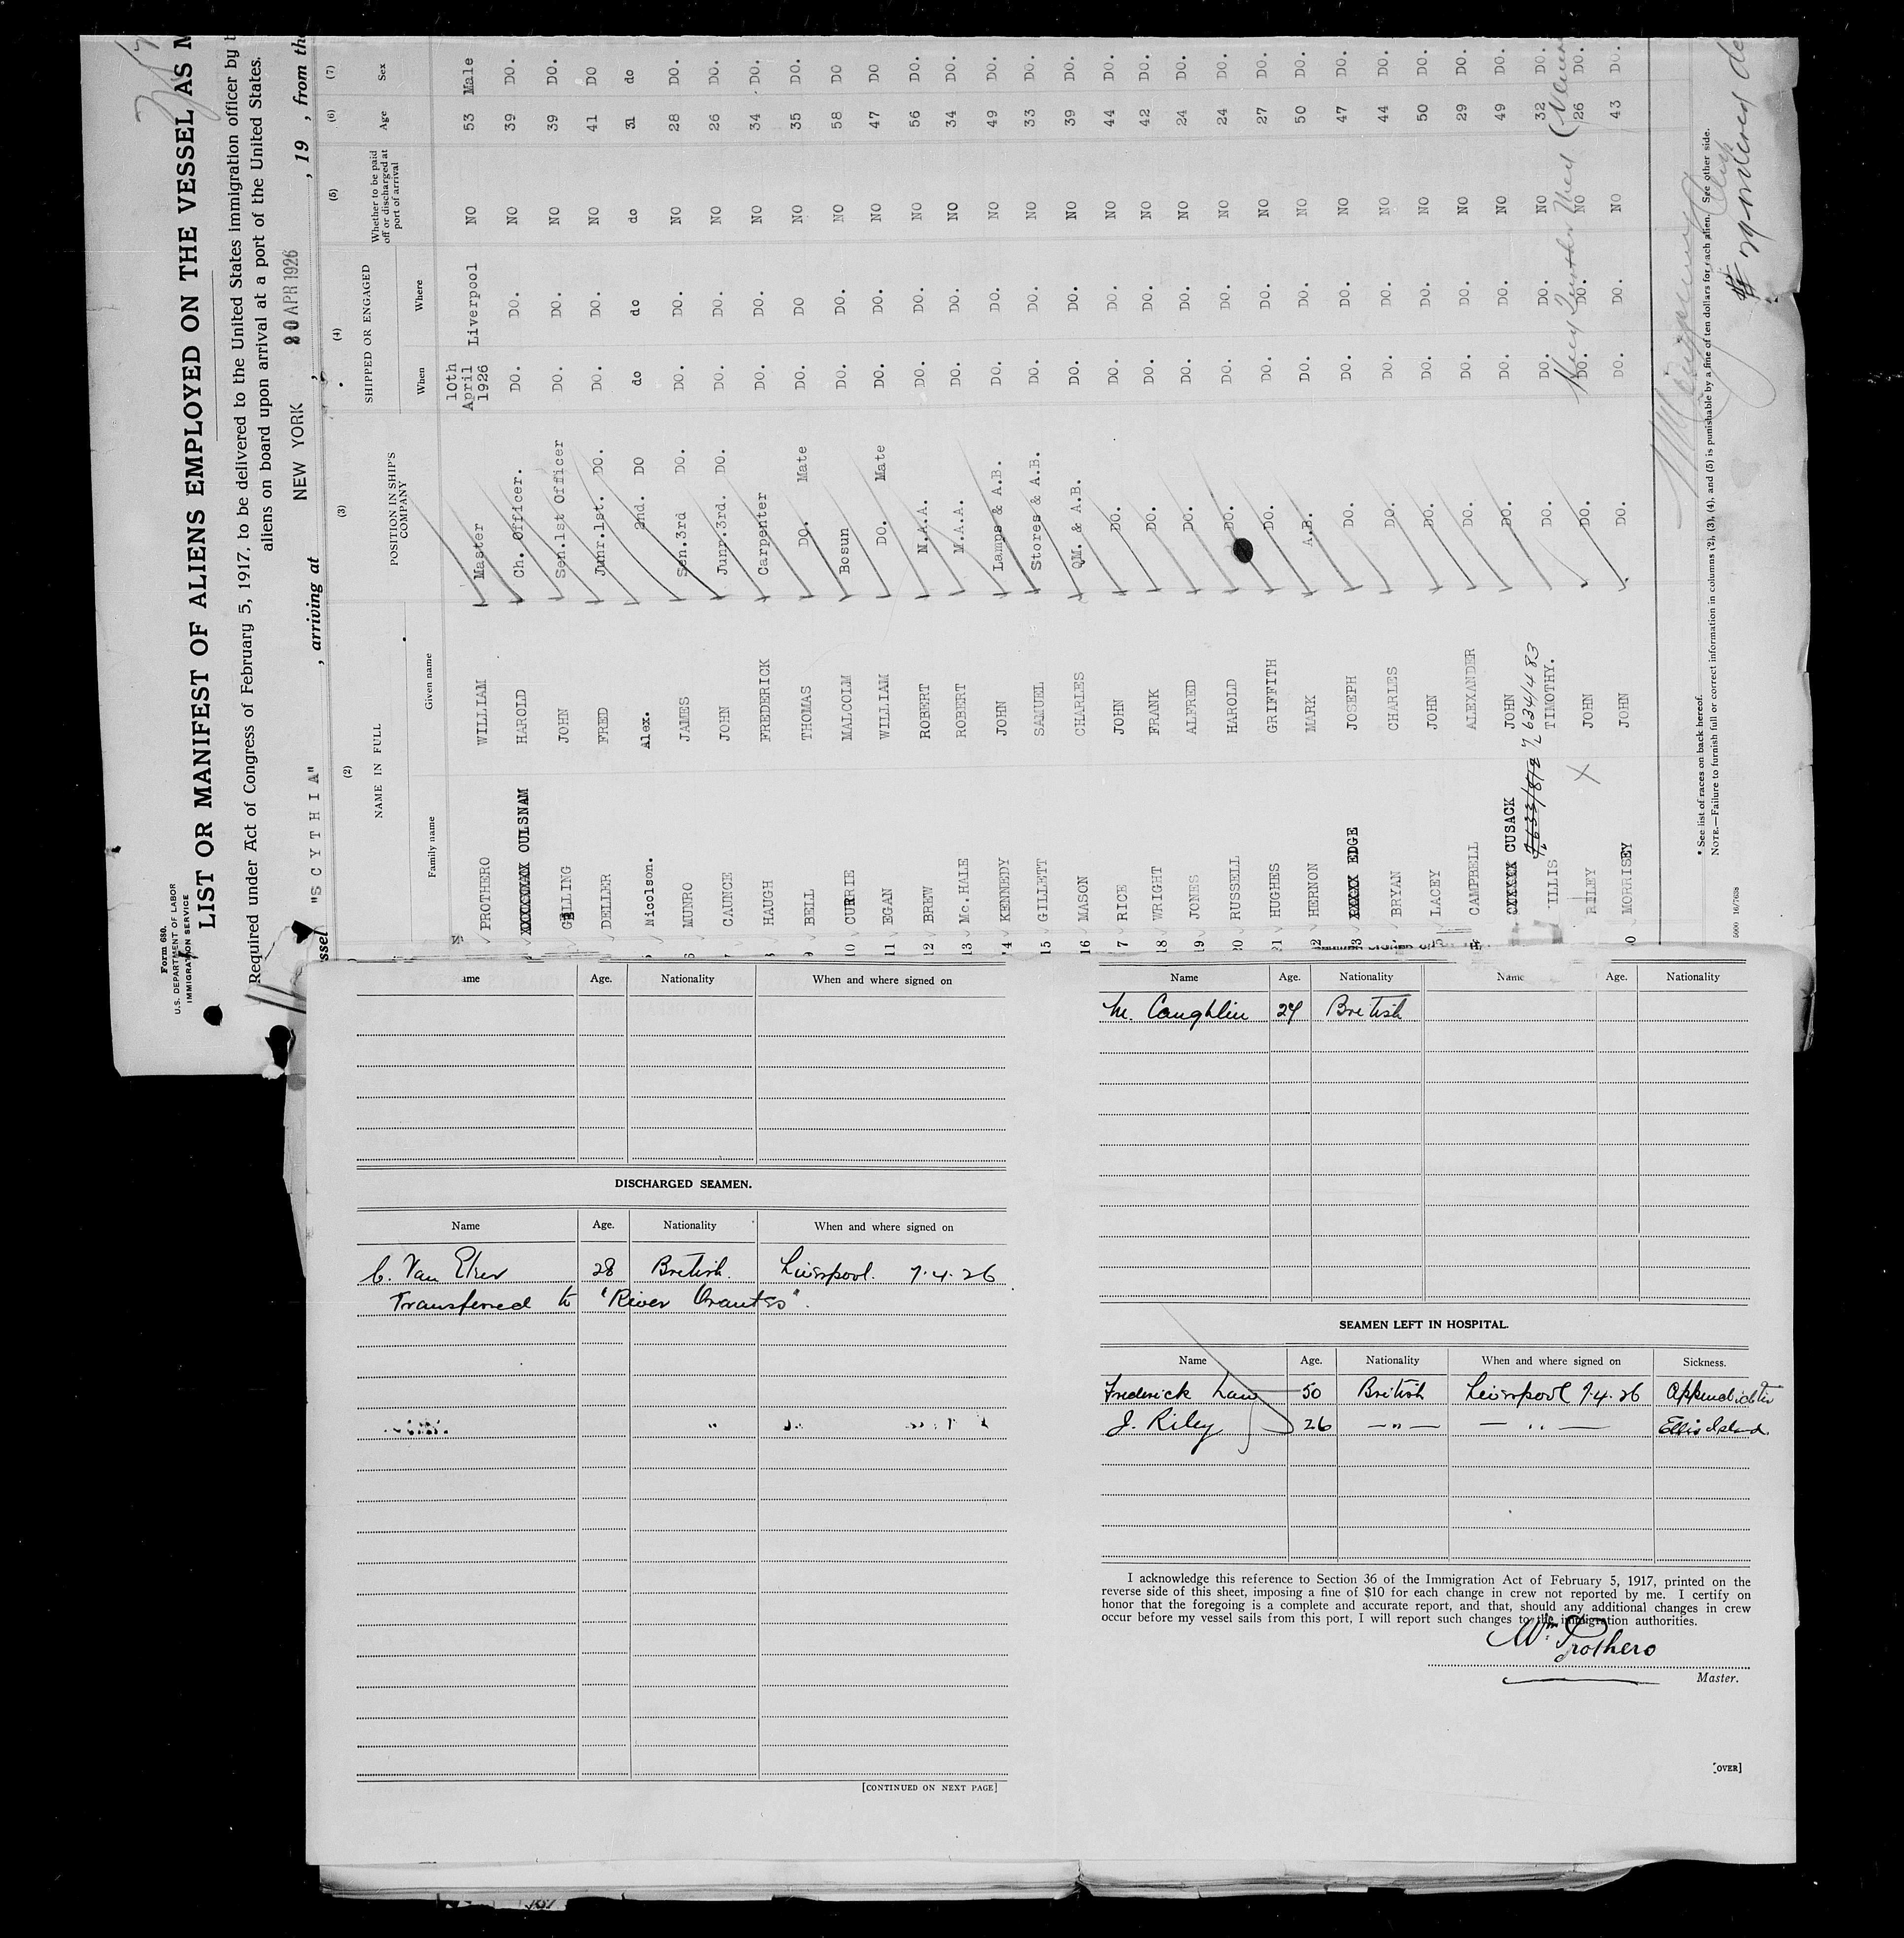 Form 680.
U.S. DEPARTMENT OF LABOR
IMMIGRATION SERVICE
LIST OR MANIFEST OF ALIENS EMPLOYED ON THE VESSEL AS M
Required under Act of Congress of February 5, 1917, to be delivered to the United States immigration officer by
aliens on board upon arrival at a port of the United States.
ssel "SCYTHIA" , arriving at NEW YORK , 20 APR 1926 , 19 , from the
(2) (3) (4) (5) (6) (7)
NAME IN FULL POSITION IN SHIP'S COMPANY SHIPPED OR ENGAGED Whether to be paid off or discharged at port of arrival Age Sex
Family name Given name When Where
PROTHERO WILLIAM Master 10th April 1926 Liverpool NO 53 Male
OULSNAM HAROLD Ch. Officer. DO. DO. NO 39 DO.
GELLING JOHN Sen.1st Officer DO. DO. NO 39 DO.
DELLER FRED Junr.1st. DO. DO. DO. NO 41 DO
Nicolson. Alex. 2nd. DO do do do 31 do
MUNRO JAMES Sen.3rd DO. DO. DO. NO 28 DO.
CAUNCE JOHN Junr.3rd. DO. DO. DO. NO 26 DO.
HAUGH FREDERICK Carpenter DO. DO. NO 34 DO.
9 BELL THOMAS DO. Mate DO. DO NO 35 DO.
10 CURRIE MALCOLM Bosun DO. DO. NO 58 DO
11 EGAN WILLIAM DO. Mate DO. DO. NO 47 DO
12 BREW ROBERT M.A.A. DO. DO. NO 56 DO.
13 Mc.HALE ROBERT M.A.A. DO. DO. NO 34 DO.
14 KENNEDY JOHN Lamps & A.B. DO. DO. NO 49 DO.
15 GILLETT SAMUEL Stores & A.B. DO. DO. NO 33 DO.
16 MASON CHARLES QM. & A.B. DO. DO. NO 39 DO.
17 RICE JOHN DO. DO. DO. NO 44 DO.
18 WRIGHT FRANK DO. DO. DO. NO 42 DO.
19 JONES ALFRED DO. DO. DO. NO 24 DO.
20 RUSSELL HAROLD DO. DO. DO. NO 24 DO.
21 HUGHES GRIFFITH DO. DO. DO. NO 27 DO.
22 HERNON MARK A.B. DO. DO. NO 50 DO.
23 EDGE JOSEPH DO. DO. DO. NO 47 DO.
BRYAN CHARLES DO. DO. DO. NO 44 DO.
LACEY JOHN DO. DO. DO. NO 50 DO.
CAMPBELL ALEXANDER DO. DO. DO. NO 29 DO.
CUSACK JOHN DO. DO. DO. NO 49 DO.
634/483
ILLIS TIMOTHY. DO. DO. DO. NO 32 DO.
RILEY X JOHN DO. DO. DO. NO 26 DO.
MORRISEY JOHN DO. DO. DO. NO 43 DO.
* See list of races on back hereof.
NOTE.—Failure to furnish full or correct information in columns (2), (3), (4), and (5) is punishable by a fine of ten dollars for each alien. See other side.
Name Age. Nationality When and where signed on
DISCHARGED SEAMEN.
Name Age. Nationality When and where signed on
C. Van Eker 28 British. Liverpool. 7.4.26
Transferred to "River Orantes".
[CONTINUED ON NEXT PAGE]
Name Age. Nationality Name Age. Nationality
M. Caughlin 24 British
SEAMEN LEFT IN HOSPITAL.
Name Age. Nationality When and where signed on Sickness.
Frederick Law 50 British Liverpool 7.4.26 Appendicitis
J. Riley 26 —"— —"— Ellis Island.
I acknowledge this reference to Section 36 of the Immigration Act of February 5, 1917, printed on the
reverse side of this sheet, imposing a fine of $10 for each change in crew not reported by me. I certify on
honor that the foregoing is a complete and accurate report, and that, should any additional changes in crew
occur before my vessel sails from this port, I will report such changes to the immigration authorities.
Wm. Prothero
Master.
[OVER]